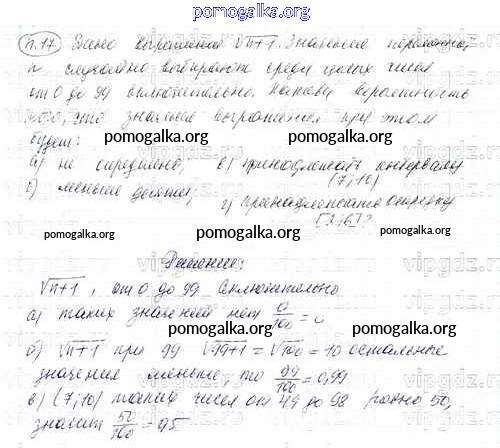 pomogalka.org
п.17 Дано выражение √n+1. Значение переменной
n случайно выбирают среди целых чисел
от 0 до 99 включительно. Какова вероятность
того, что значение выражения при этом
будет:
pomogalka.org pomogalka.org
а) не определено; в) принадлежать интервалу
(7;10)
б) меньше десяти;
г) принадлежать отрезку
[2;6]?
pomogalka.org pomogalka.org
Решение:
√n+1, от 0 до 99 включительно
pomogalka.org
а) таких значений нет 0/100 = 0
pomogalka.org pomogalka.org
б) √n+1 при 99 √99+1 = √100 = 10 остальные
значения меньше, то 99/100 = 0,99
в) (7;10) таких чисел от 49 до 98 равно 50,
значит 50/100 = 0,5
pomogalka.org pomogalka.org